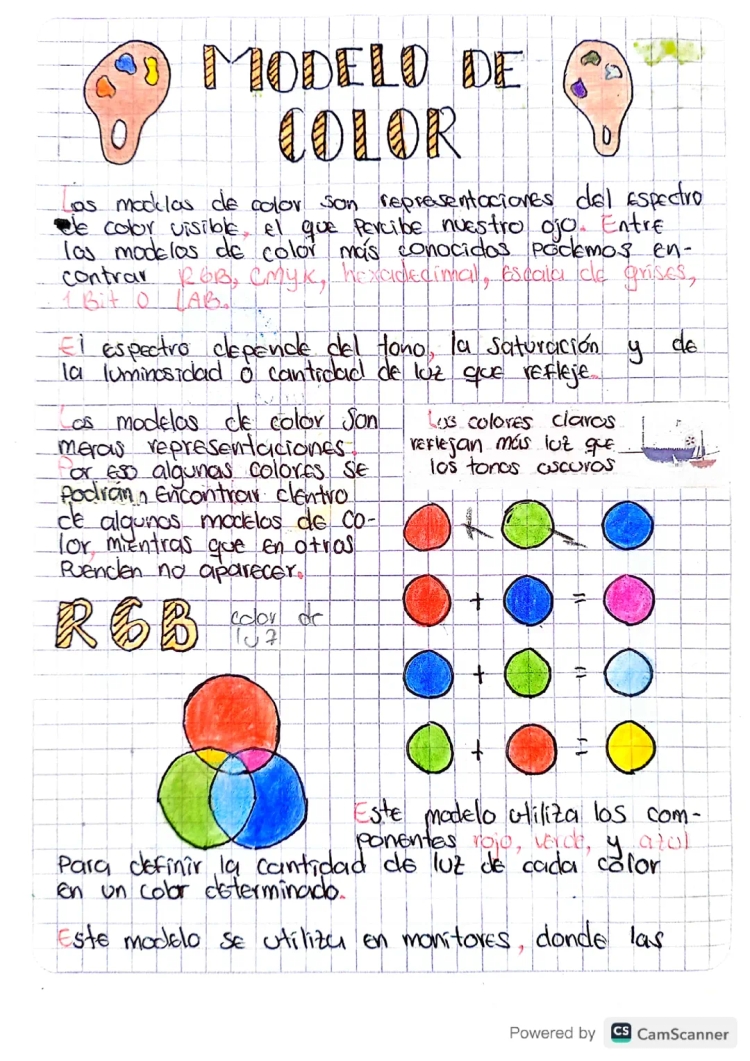 MODELO DE
COLOR
Los modelos de color son representaciones del espectro
de color visible, el que percibe nuestro ojo. Entre
los modelos de color más conocidos podemos en-
contrar RGB, CMYK, hexadecimal, escala de grises,
1 Bit o LAB.
El espectro depende del tono, la saturación y de
la luminosidad o cantidad de luz que refleje.
Los modelos de color son
meras representaciones.
Por eso algunas colores se
podrán encontrar dentro
de algunos modelos de co-
lor, mientras que en otros
pueden no aparecer.
Los colores claros
reflejan más luz que
los tonos oscuros
+ =
+ =
+ =
RGB color de
luz
Este modelo utiliza los com-
ponentes rojo, verde, y azul
para definir la cantidad de luz de cada color
en un color determinado.
Este modelo se utiliza en monitores, donde las
Powered by CS CamScanner